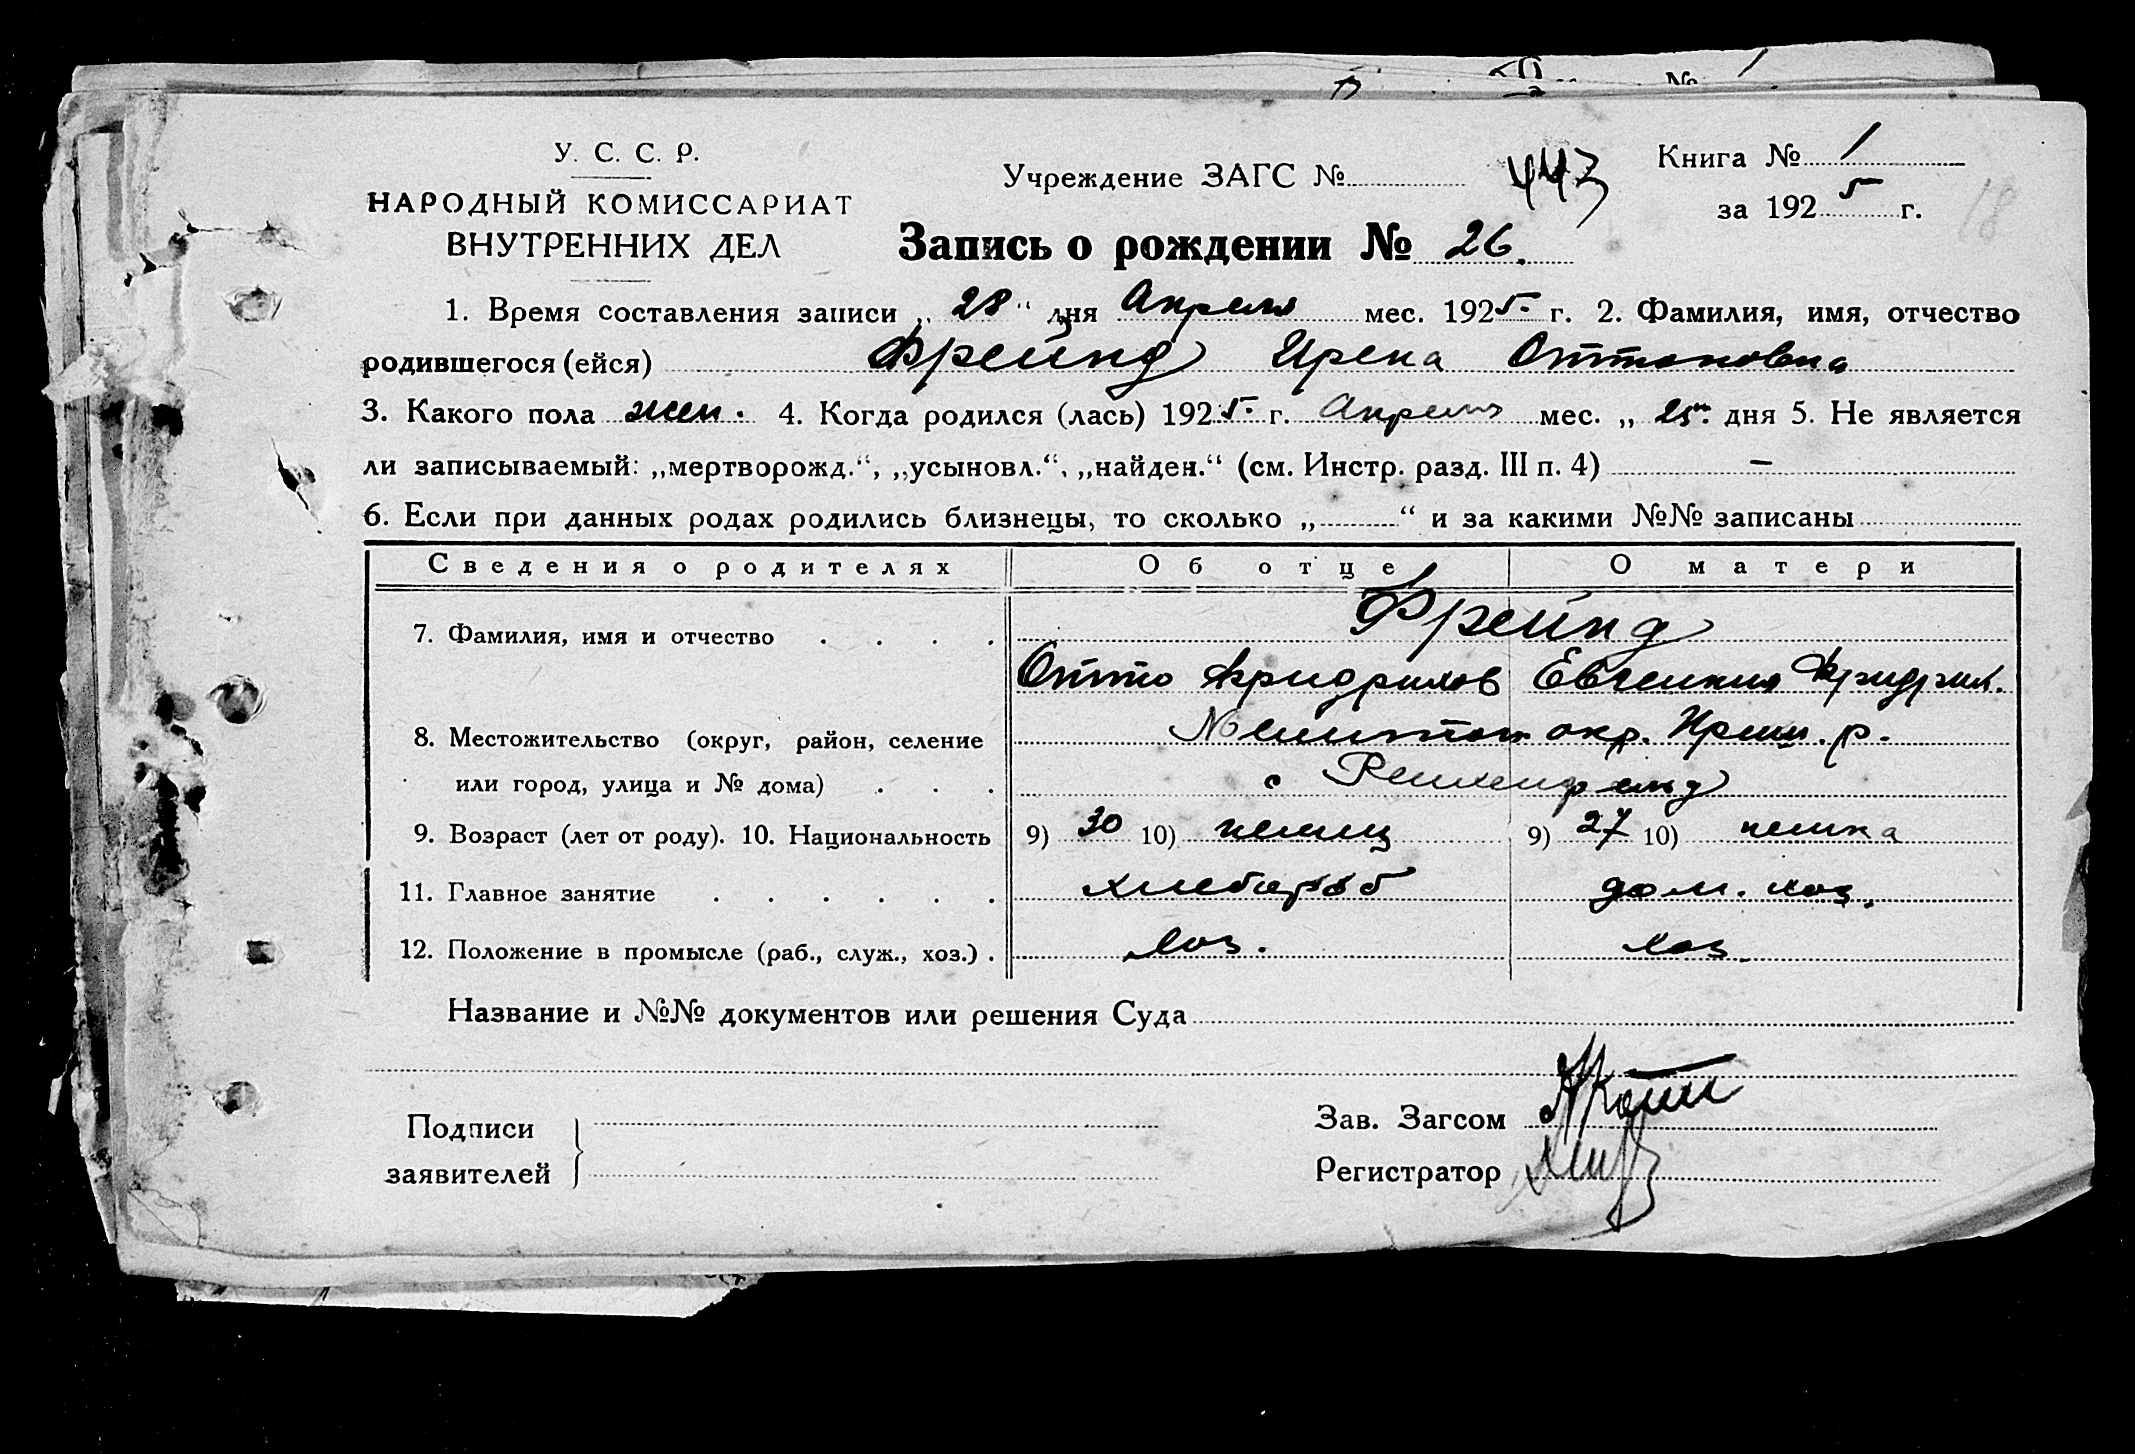 У. С. С. Р.
НАРОДНЫЙ КОМИССАРИАТ
ВНУТРЕННИХ ДЕЛ
Учреждение ЗАГС №
443
Книга № 1
за 1925 г.
18
Запись о рождении № 26.
1. Время составления записи „28" дня Апреля мес. 1925 г. 2. Фамилия, имя, отчество
родившегося (ейся) Фрейнд Ирена Оттоновна
3. Какого пола жен. 4. Когда родился (лась) 1925 г. Апреля мес. „25" дня 5. Не является
ли записываемый: „мертворожд.“, „усыновл.“, „найден.“ (см. Инстр. разд. III п. 4) —
6. Если при данных родах родились близнецы, то сколько „ “ и за какими №№ записаны
Сведения о родителях Об отце О матери
Фрейнд
7. Фамилия, имя и отчество
Отто Фридрихов Евгения Фридрих.
8. Местожительство (округ, район, селение окр. Приш. р.
или город, улица и № дома) с Рейхенфельд
9. Возраст (лет от роду). 10. Национальность 9) 30 10) немец 9) 27 10) немка
11. Главное занятие хлебороб дом. хоз.
12. Положение в промысле (раб., служ., хоз.) хоз. хоз.
Название и №№ документов или решения Суда
Подписи
заявителей
Зав. Загсом
Регистратор